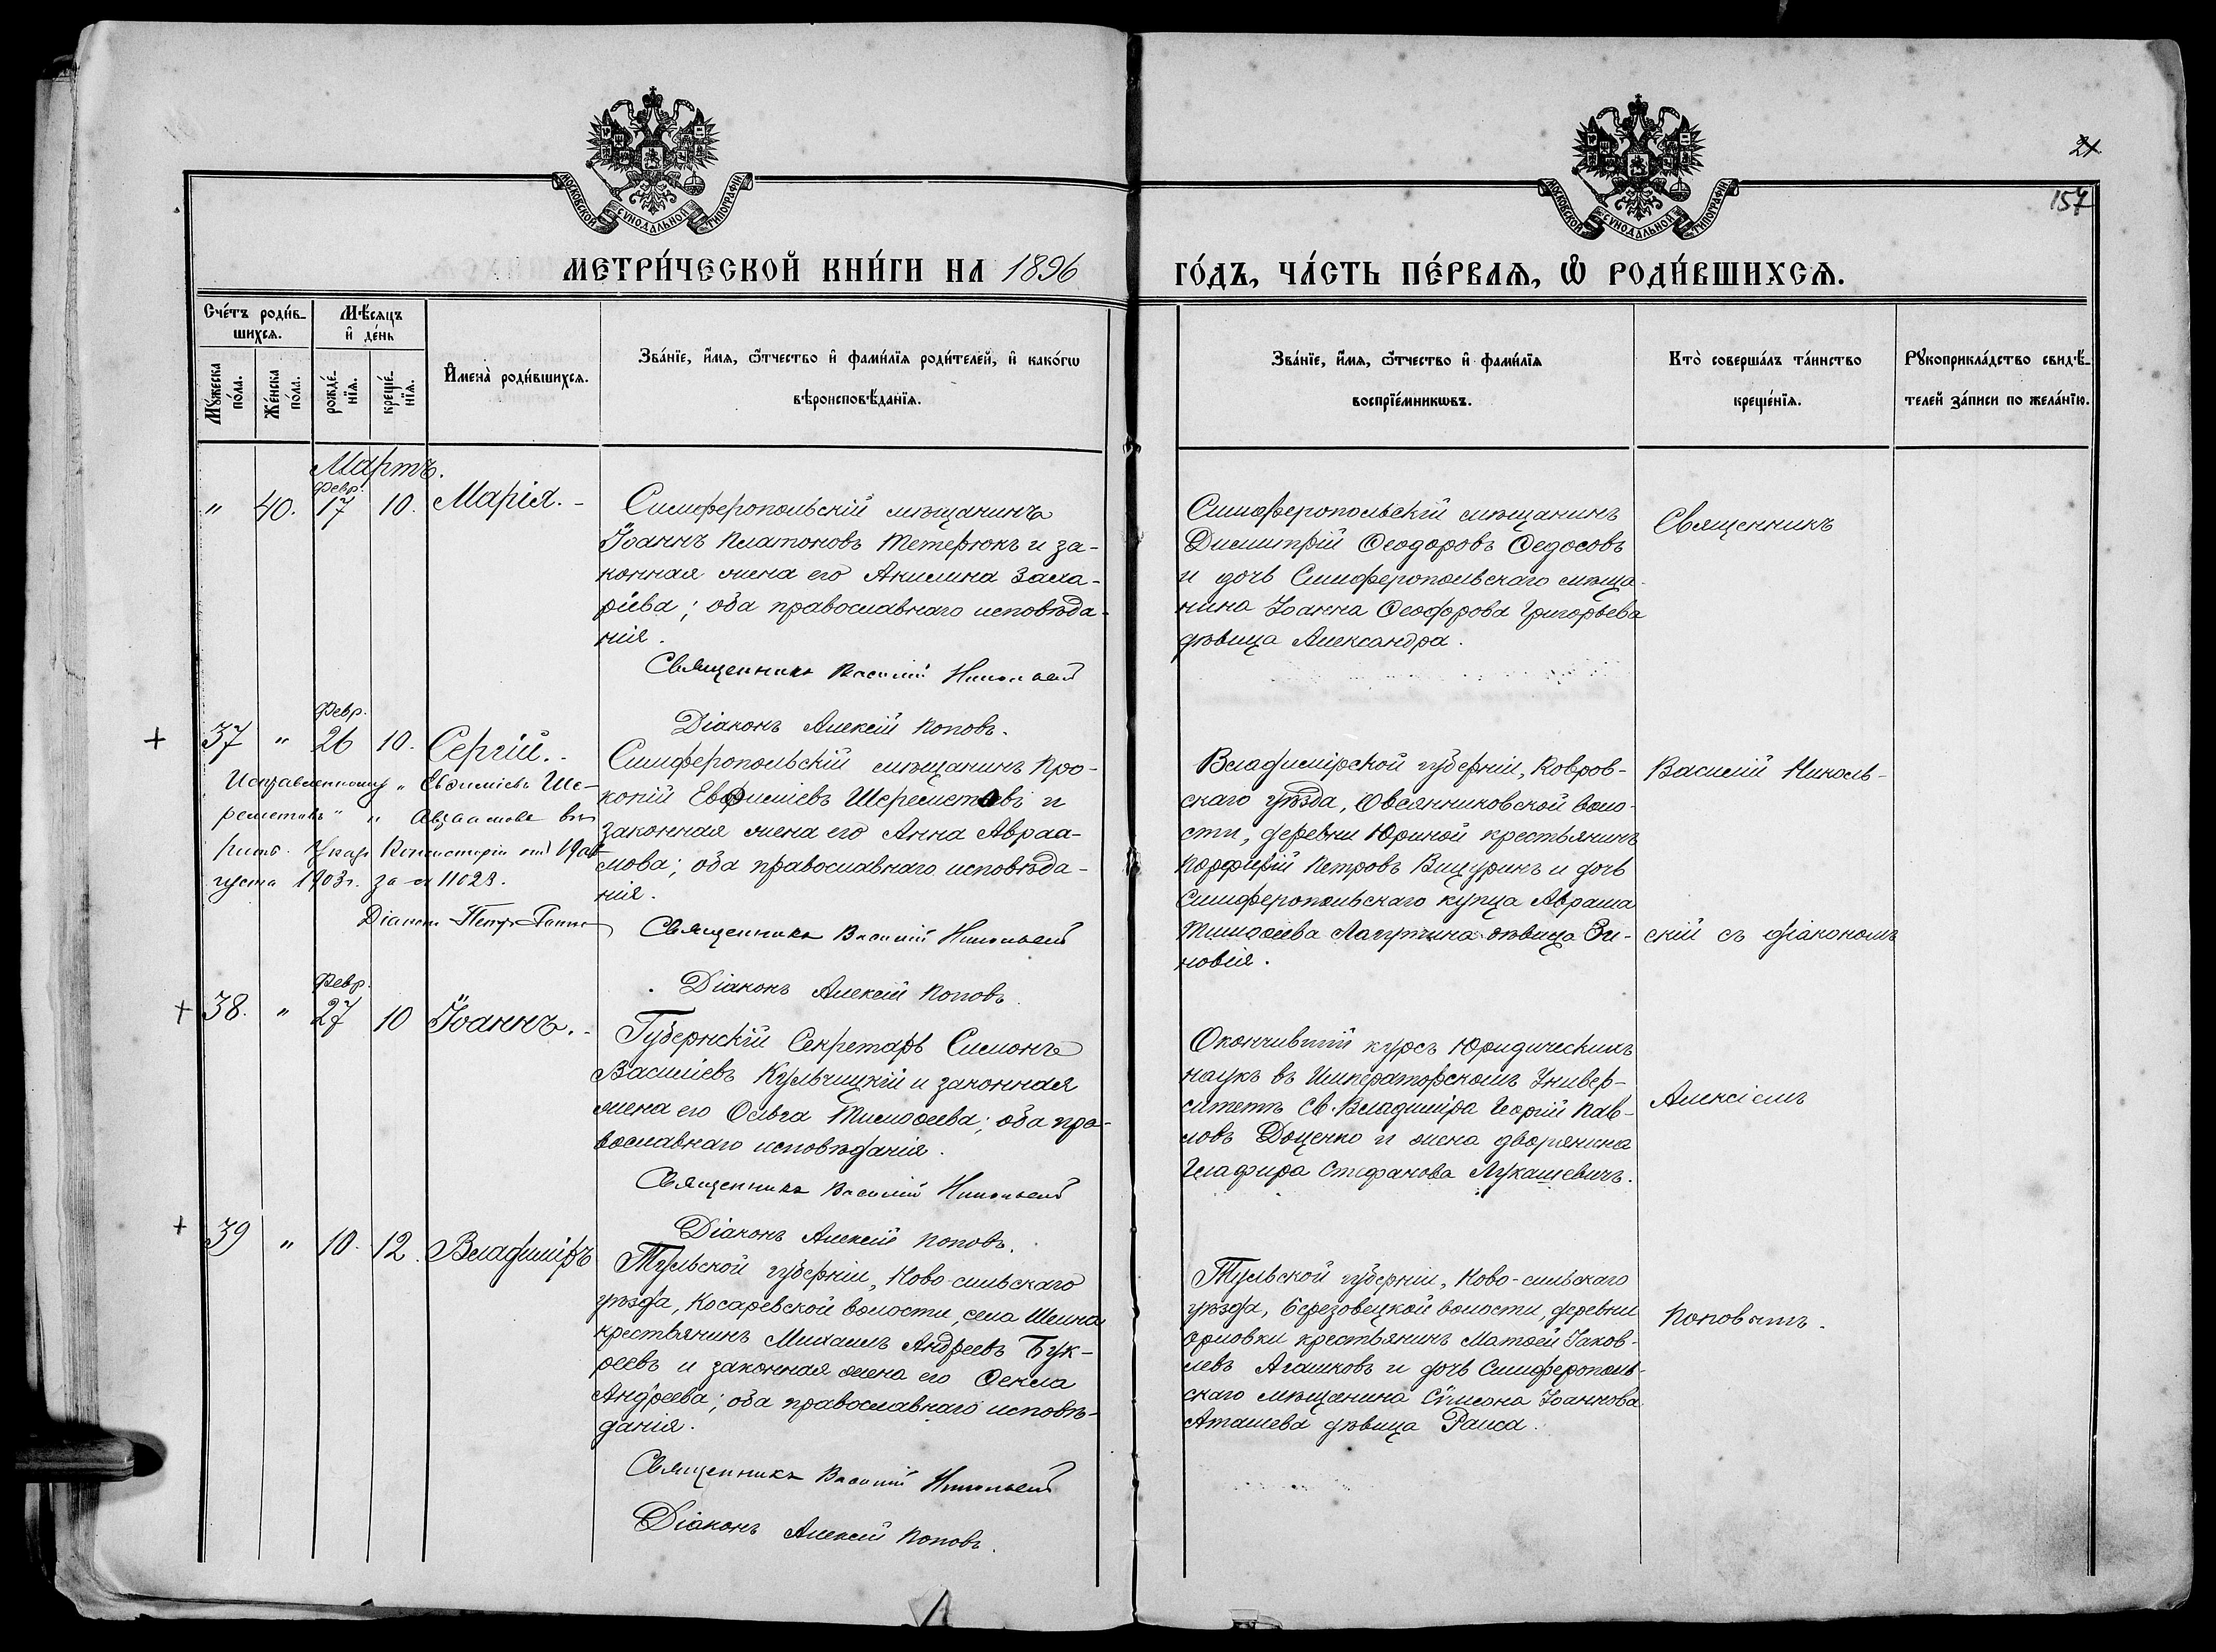 21
157
МОСКОВСКОЙ СѴНОДАЛЬНОЙ ТИПОГРАФІИ
МОСКОВСКОЙ СѴНОДАЛЬНОЙ ТИПОГРАФІИ
МЕТРИ́ЧЕСКОЙ КНИ́ГИ НА 1896
ГО́ДЪ, ЧА́СТЬ ПЕ́РВАѦ, Ѽ РОДИ́ВШИХСѦ.
Сче́тъ роди́в-
шихсѧ.
Мꙋ́жеска по́ла.
Же́нска по́ла.
Мѣ́сѧцъ
и҆ де́нь
рожде́-
нїѧ.
креще́-
нїѧ.
И҆мена̀ роди́вшихсѧ.
Зва́нїе, и҆́мѧ, ѻ҆́тчество и҆ фами́лїѧ роди́телей, и҆ како́гѡ
вѣроисповѣ́данїѧ.
Зва́нїе, и҆́мѧ, ѻ҆́тчество и҆ фами́лїѧ
воспрїе́мникѡвъ.
Кто̀ соверша́лъ та́инство
креще́нїѧ.
Рꙋкоприкла́дство свидѣ́-
телей за́писи по жела́нїю.
Мартъ.
Февр.
" 40. 17 10. Марія. -
Симферопольскій мѣщанинъ
Іоаннъ Платоновъ Тетерюкъ и за-
конная жена его Акилина Заха-
ріева; оба православнаго исповѣда-
нія.
Священникъ Василій Никольскій
Діаконъ Алексій Поповъ.
Симферопольскій мѣщанинъ
Димитрій Ѳеодоровъ Ѳедосовъ
и дочь Симферопольскаго мѣща-
нина Іоанна Ѳеодорова Григорьева
дѣвица Александра.
Священникъ
Февр.
+ 37 " 26 10. Сергій. -
Исправленному "Евѳиміевъ Ше-
реметовъ" " Авраамова вѣ-
рить. Указъ Консисторіи отъ 19 ав-
густа 1903 г. за № 11028.
Діаконъ Петръ
Симферопольскій мѣщанинъ Про-
копій Евѳиміевъ Шереметовъ и
законная жена его Анна Авраа-
мова; оба православнаго исповѣда-
нія.
Священникъ Василій Никольскій
Діаконъ Алексій Поповъ.
Владимірской губерніи, Ковров-
скаго уѣзда, Овсянниковской воло-
сти, деревни Юриной крестьянинъ
Порфирій Петровъ Вицуринъ и дочь
Симферопольскаго купца Аврама
Тимоѳеева Лапушкина дѣвица Зи-
новія.
Василій Николь-
скій съ діакономъ
Февр.
+ 38. " 27 10 Іоаннъ. -
Губернскій Секретарь Симонъ
Василіевъ Кульчицкій и законная
жена его Ольга Тимоѳеева; оба пра-
вославнаго исповѣданія.
Священникъ Василій Никольскій
Діаконъ Алексій Поповъ.
Окончившій курсъ Юридическихъ
наукъ въ Императорскомъ Универ-
ситетѣ Св. Владиміра Георгій Пав-
ловъ Доценко и жена дворянина
Глафира Стефанова Лукашевичъ.
Алексіемъ
+ 39 " 10. 12. Владиміръ
Тульской губерніи, Ново-сильскаго
уѣзда, Косаревской волости, села Шеина
крестьянинъ Михаилъ Андреевъ Бук-
реевъ и законная жена его Ѳекла
Андреева; оба православнаго исповѣ-
данія.
Священникъ Василій Никольскій
Діаконъ Алексій Поповъ.
Тульской губерніи, Ново-сильскаго
уѣзда, Березовецкой волости, деревни
Орловки крестьянинъ Матѳей Іаков-
левъ Агашковъ и дочь Симферополь-
скаго мѣщанина Симеона Іоаннова
Аташева дѣвица Раиса.
Поповымъ.